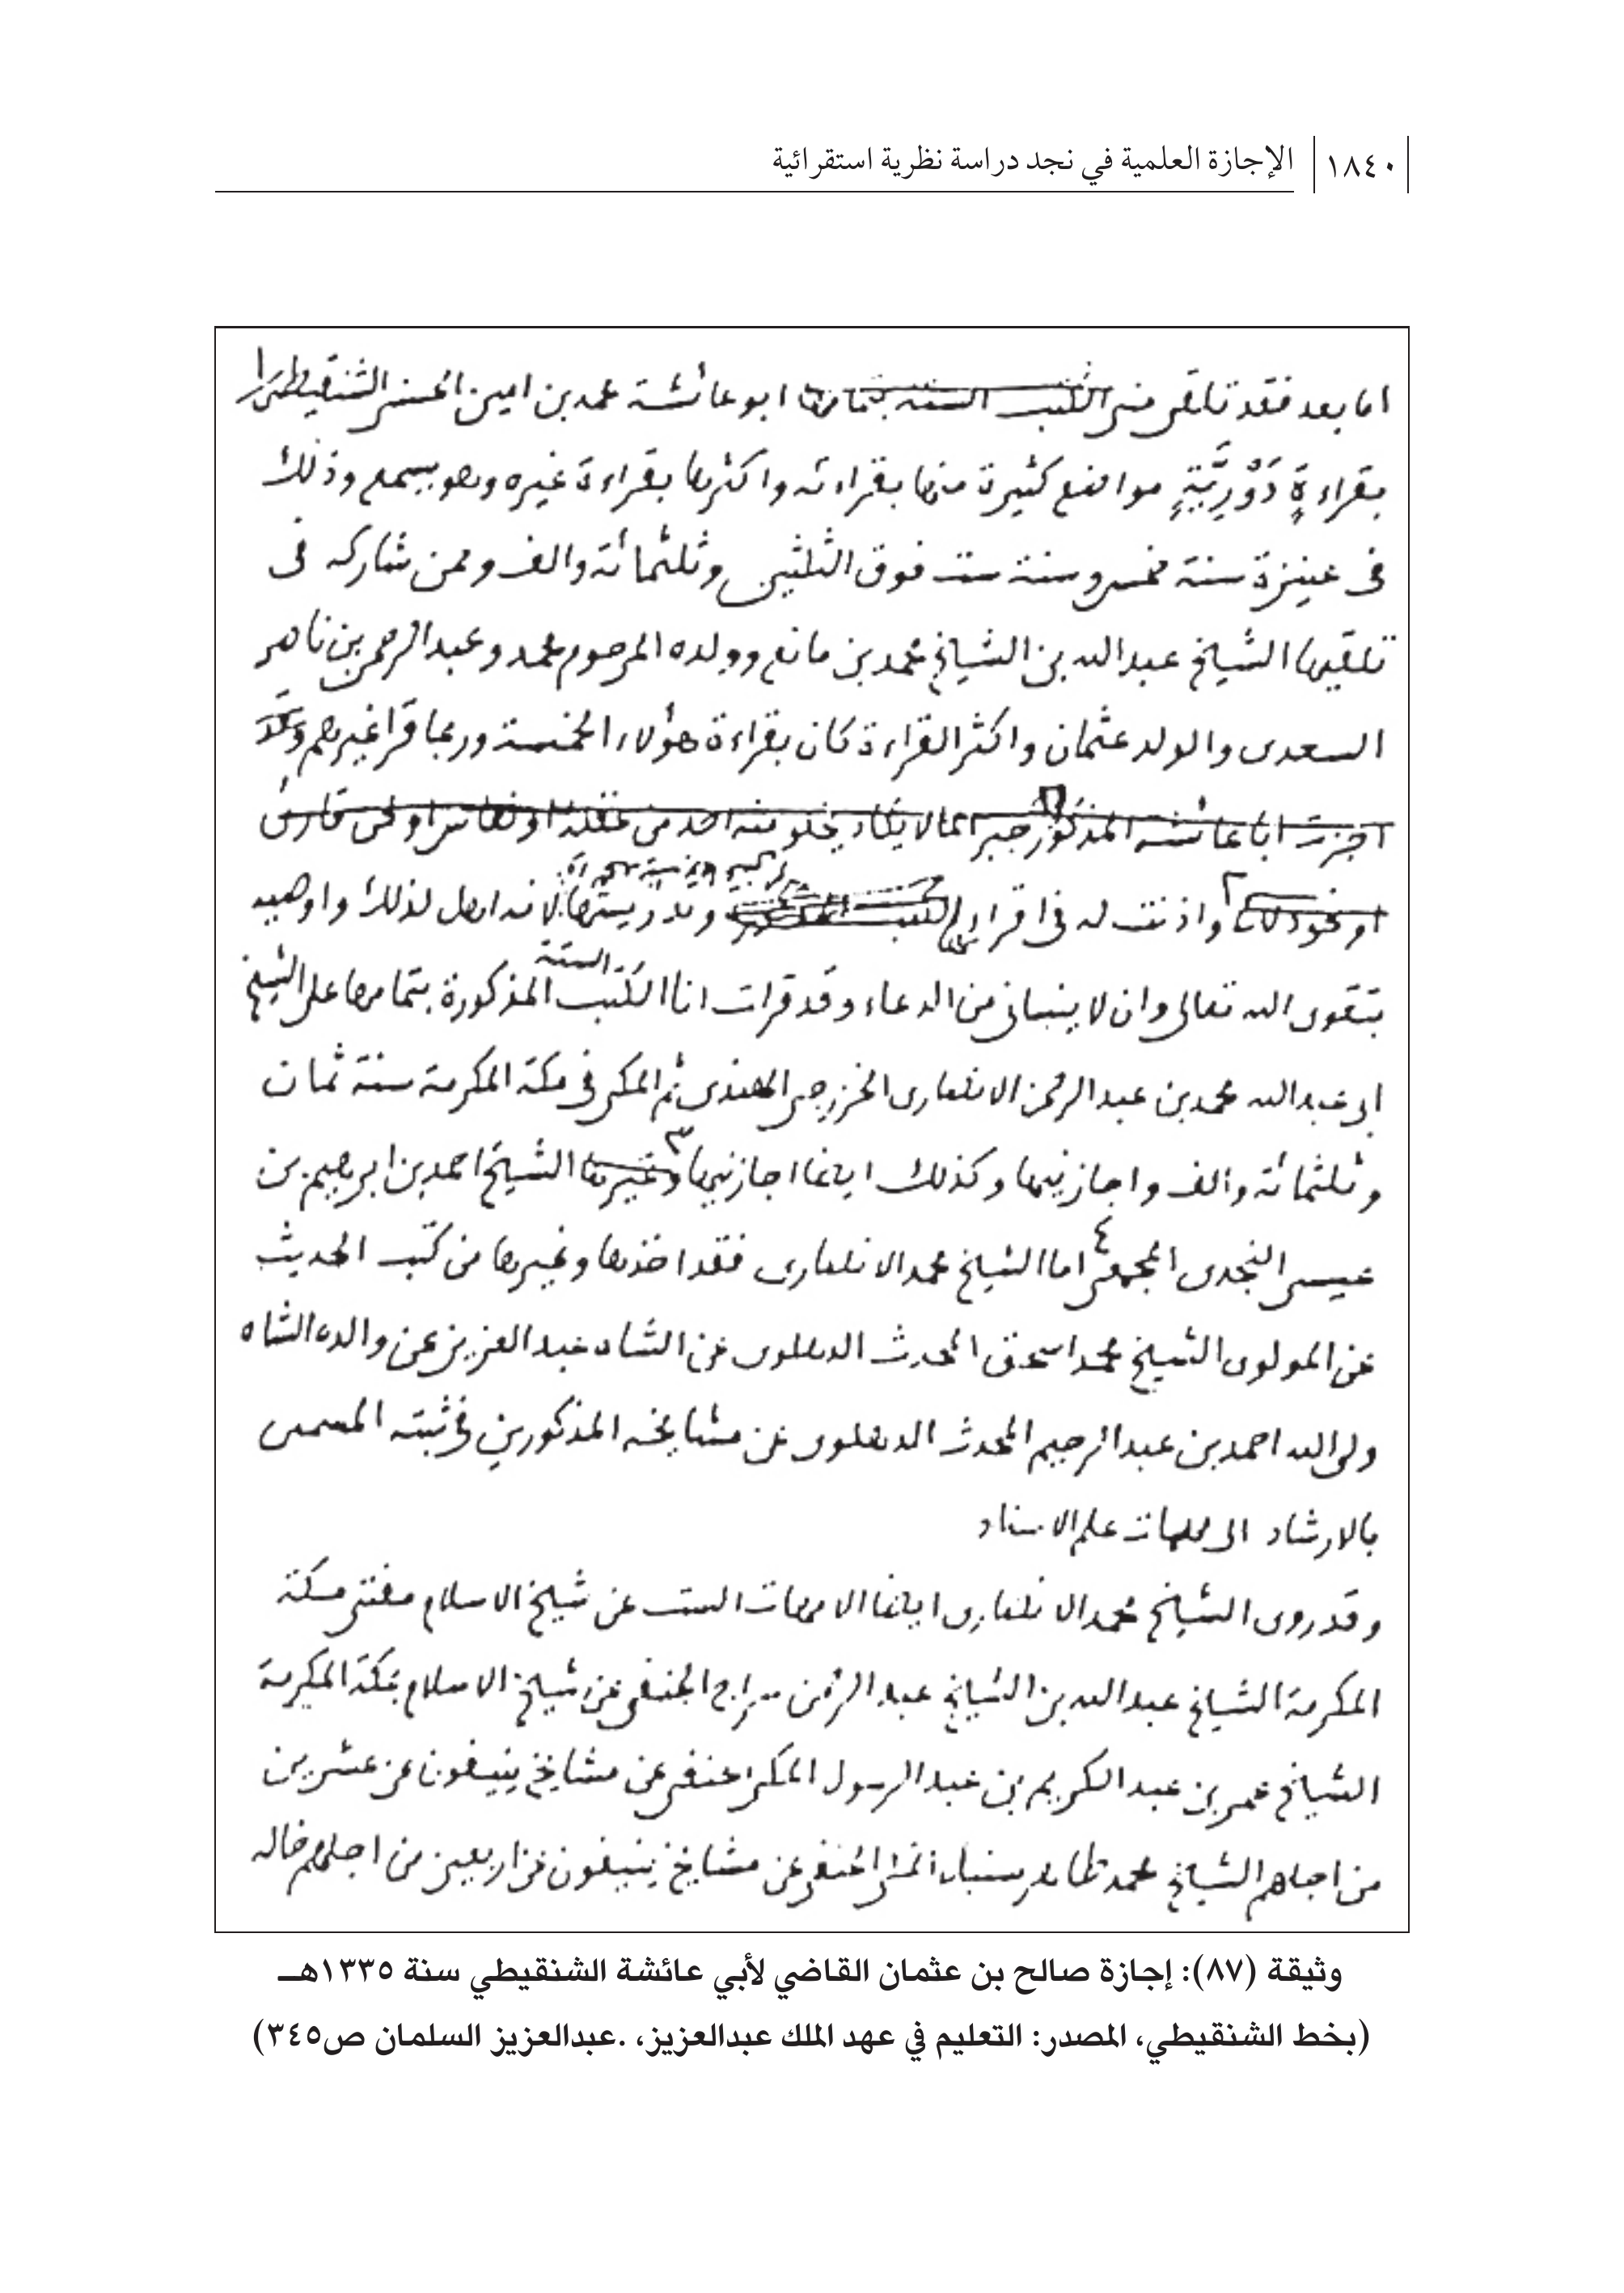 ١٨٤٠ الإجازة العلمية في نجد دراسة نظرية استقرائية
اما بعد فقد تلقى منى الكتب الستة بتمامها ابو عائشة محمد بن امين الحسنى الشنقيطى
بقراءةٍ دَوْرِيَّةٍ مواضع كثيرة منها بقراءته واكثرها بقراءة غيره وهو يسمع وذلك
فى عنيزة سنة خمس وسنة ست فوق الثلثين وثلثمائة والف وممن شاركه فى
تلقيها الشيخ عبد الله بن الشيخ محمد بن مانع وولده المرحوم محمد وعبد الرحمن بن ناصر
السعدى والولد عثمان واكثر القراءة كان بقراءة هؤلاء الخمسة وربما قرا غيرهم وقد
اجزت ابا عائشة المذكور جبرا لما لا يكاد يخلو منه احد من غفلة او نعاس او لحن قارئ
او نحو ذلك ٢ واذنت له فى اقراء الكتب وتدريسها لانه اهل لذلك واوصيه
بتقوى الله تعالى وان لا ينسانى من الدعاء وقد قرات انا الكتب الستة المذكورة بتمامها على الشيخ
ابى عبد الله محمد بن عبد الرحمن الانصارى الخزرجى الهندى ثم المكى فى مكة المكرمة سنة ثمان
وثلثمائة والف واجازنيها وكذلك ايضا اجازنيها وغيرها ٣ الشيخ احمد بن ابرهيم بن
عيسى النجدى المجمعى ٤ اما الشيخ محمد الانصارى فقد اخذها وغيرها من كتب الحديث
عن المولوى الشيخ محمد اسحق المحدث الدهلوى عن الشاه عبد العزيز عن والده الشاه
ولى الله احمد بن عبد الرحيم المحدث الدهلوى عن مشايخه المذكورين فى ثبته المسمى
بالارشاد الى مهمات علم الاسناد
وقد روى الشيخ محمد الانصارى ايضا الامهات الست عن شيخ الاسلام مفتى مكة
المكرمة الشيخ عبد الله بن الشيخ عبد الرحمن سراج الحنفى عن شيخ الاسلام بمكة المكرمة
الشيخ عمر بن عبد الكريم بن عبد الرسول المكى الحنفى عن مشايخ ينيفون عن عشرين
من اجلهم الشيخ محمد طاهر سنبل الحنفى عن مشايخ ينيفون عن اربعين من اجلهم خاله
وثيقة (٨٧): إجازة صالح بن عثمان القاضي لأبي عائشة الشنقيطي سنة ١٣٣٥هـ
(بخط الشنقيطي، المصدر: التعليم في عهد الملك عبدالعزيز، .عبدالعزيز السلمان ص٣٤٥)